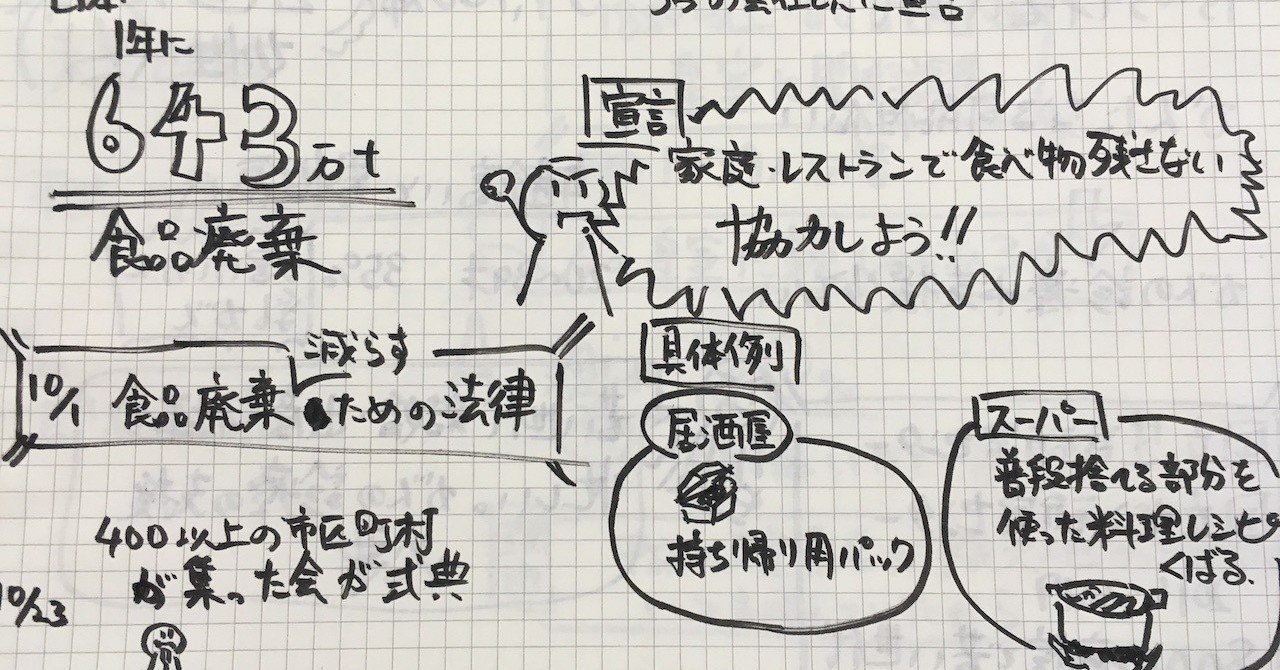 1年に
643万t
食品廃棄
減らす
10/1 食品廃棄ための法律
400以上の市区町村
が集った会が式典
10/23
宣言
宣言
家庭・レストランで食べ物残さない
協力しよう!!
具体例
居酒屋
持ち帰り用パック
スーパー
普段捨てる部分を
使った料理レシピ
くばる、